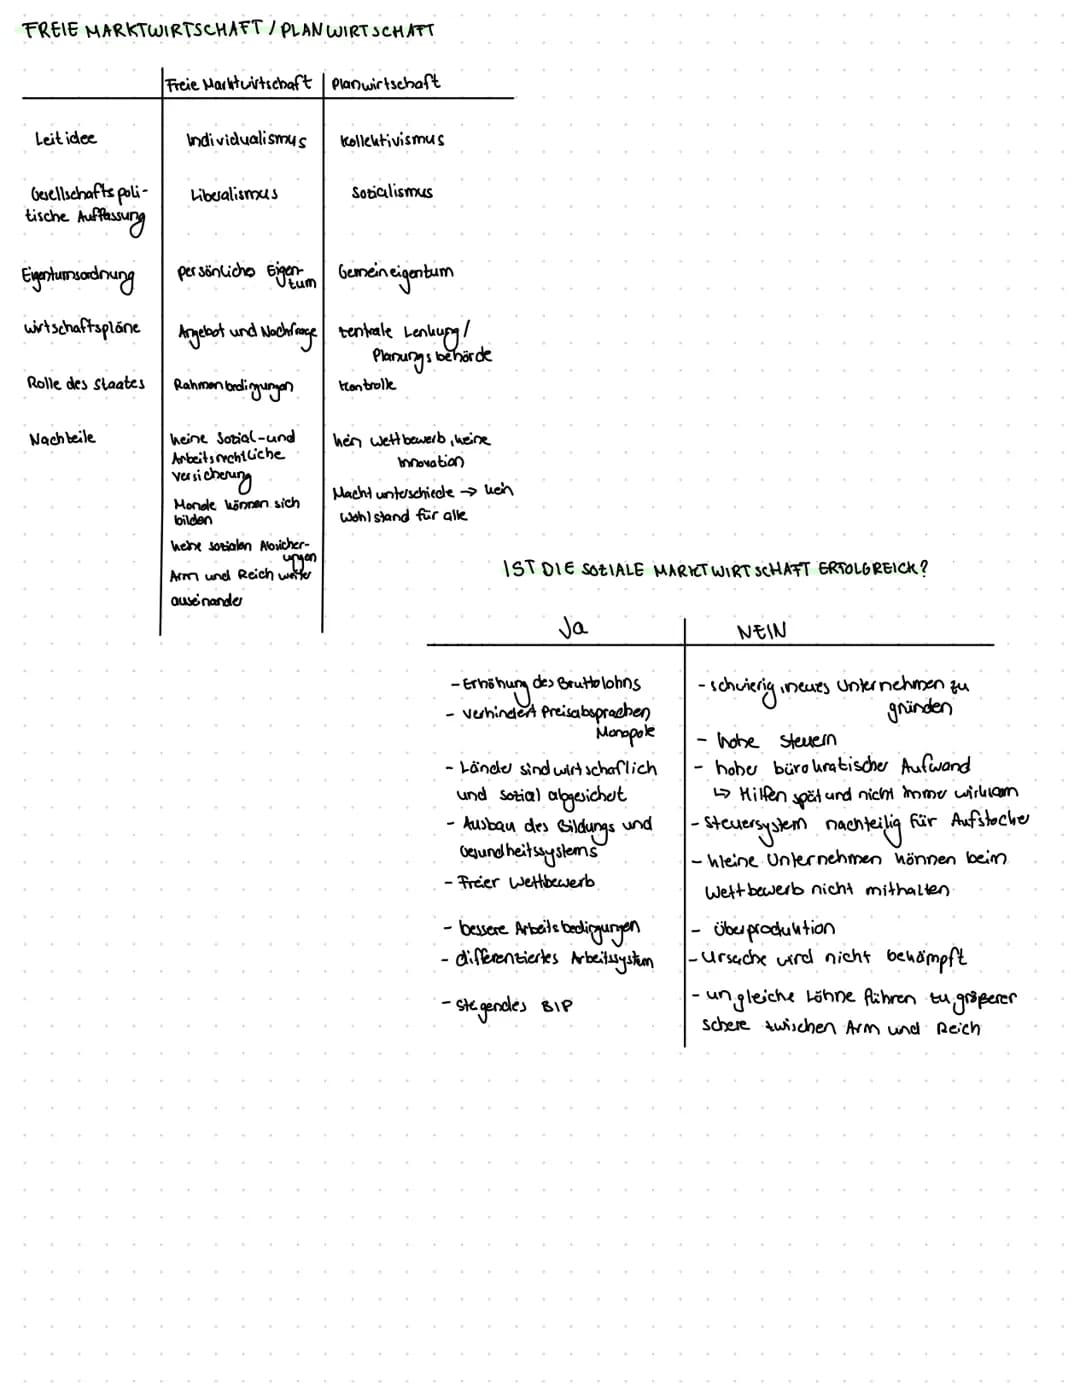 FREIE MARKTWIRTSCHAFT / PLANWIRTSCHAFT
Freie Marktwirtschaft Planwirtschaft
Leitidee Individualismus Kollektivismus
Gesellschaftspoli- Liberalismus Sozialismus
tische Auffassung
Eigentumsordnung persönliches Eigen- Gemeineigentum
tum
wirtschaftspläne Angebot und Nachfrage zentrale Lenkung /
Planungsbehörde
Rolle des Staates Rahmenbedingungen Kontrolle
Nachteile keine Sozial-und kein Wettbewerb, keine
Arbeitsrechtliche Innovation
versicherung
Machtunterschiede → kein
Monole können sich Wohlstand für alle
bilden
keine sozialen Absicher-
ungen
Arm und Reich weiter
auseinander
IST DIE SOZIALE MARKTWIRTSCHAFT ERFOLGREICH?
Ja NEIN
- Erhöhung des Bruttolohns
- verhindert Preisabsprachen
Monopole
- Länder sind wirtschaflich
und sozial abgesichert
- Ausbau des Bildungs und
Gesundheitssystems
- Freier Wettbewerb
- bessere Arbeitsbedigungen
- differenziertes Arbeitssystem
- steigendes BIP
- schwierig, neues Unternehmen zu
gründen
- hohe Steuern
- hoher bürokratischer Aufwand
↳ Hilfen spät und nicht immer wirksam
- Steuersystem nachteilig für Aufstocker
- kleine Unternehmen können beim
Wettbewerb nicht mithalten
- Überproduktion
- Ursache wird nicht bekämpft
- ungleiche Löhne führen zu größerer
schere zwischen Arm und Reich